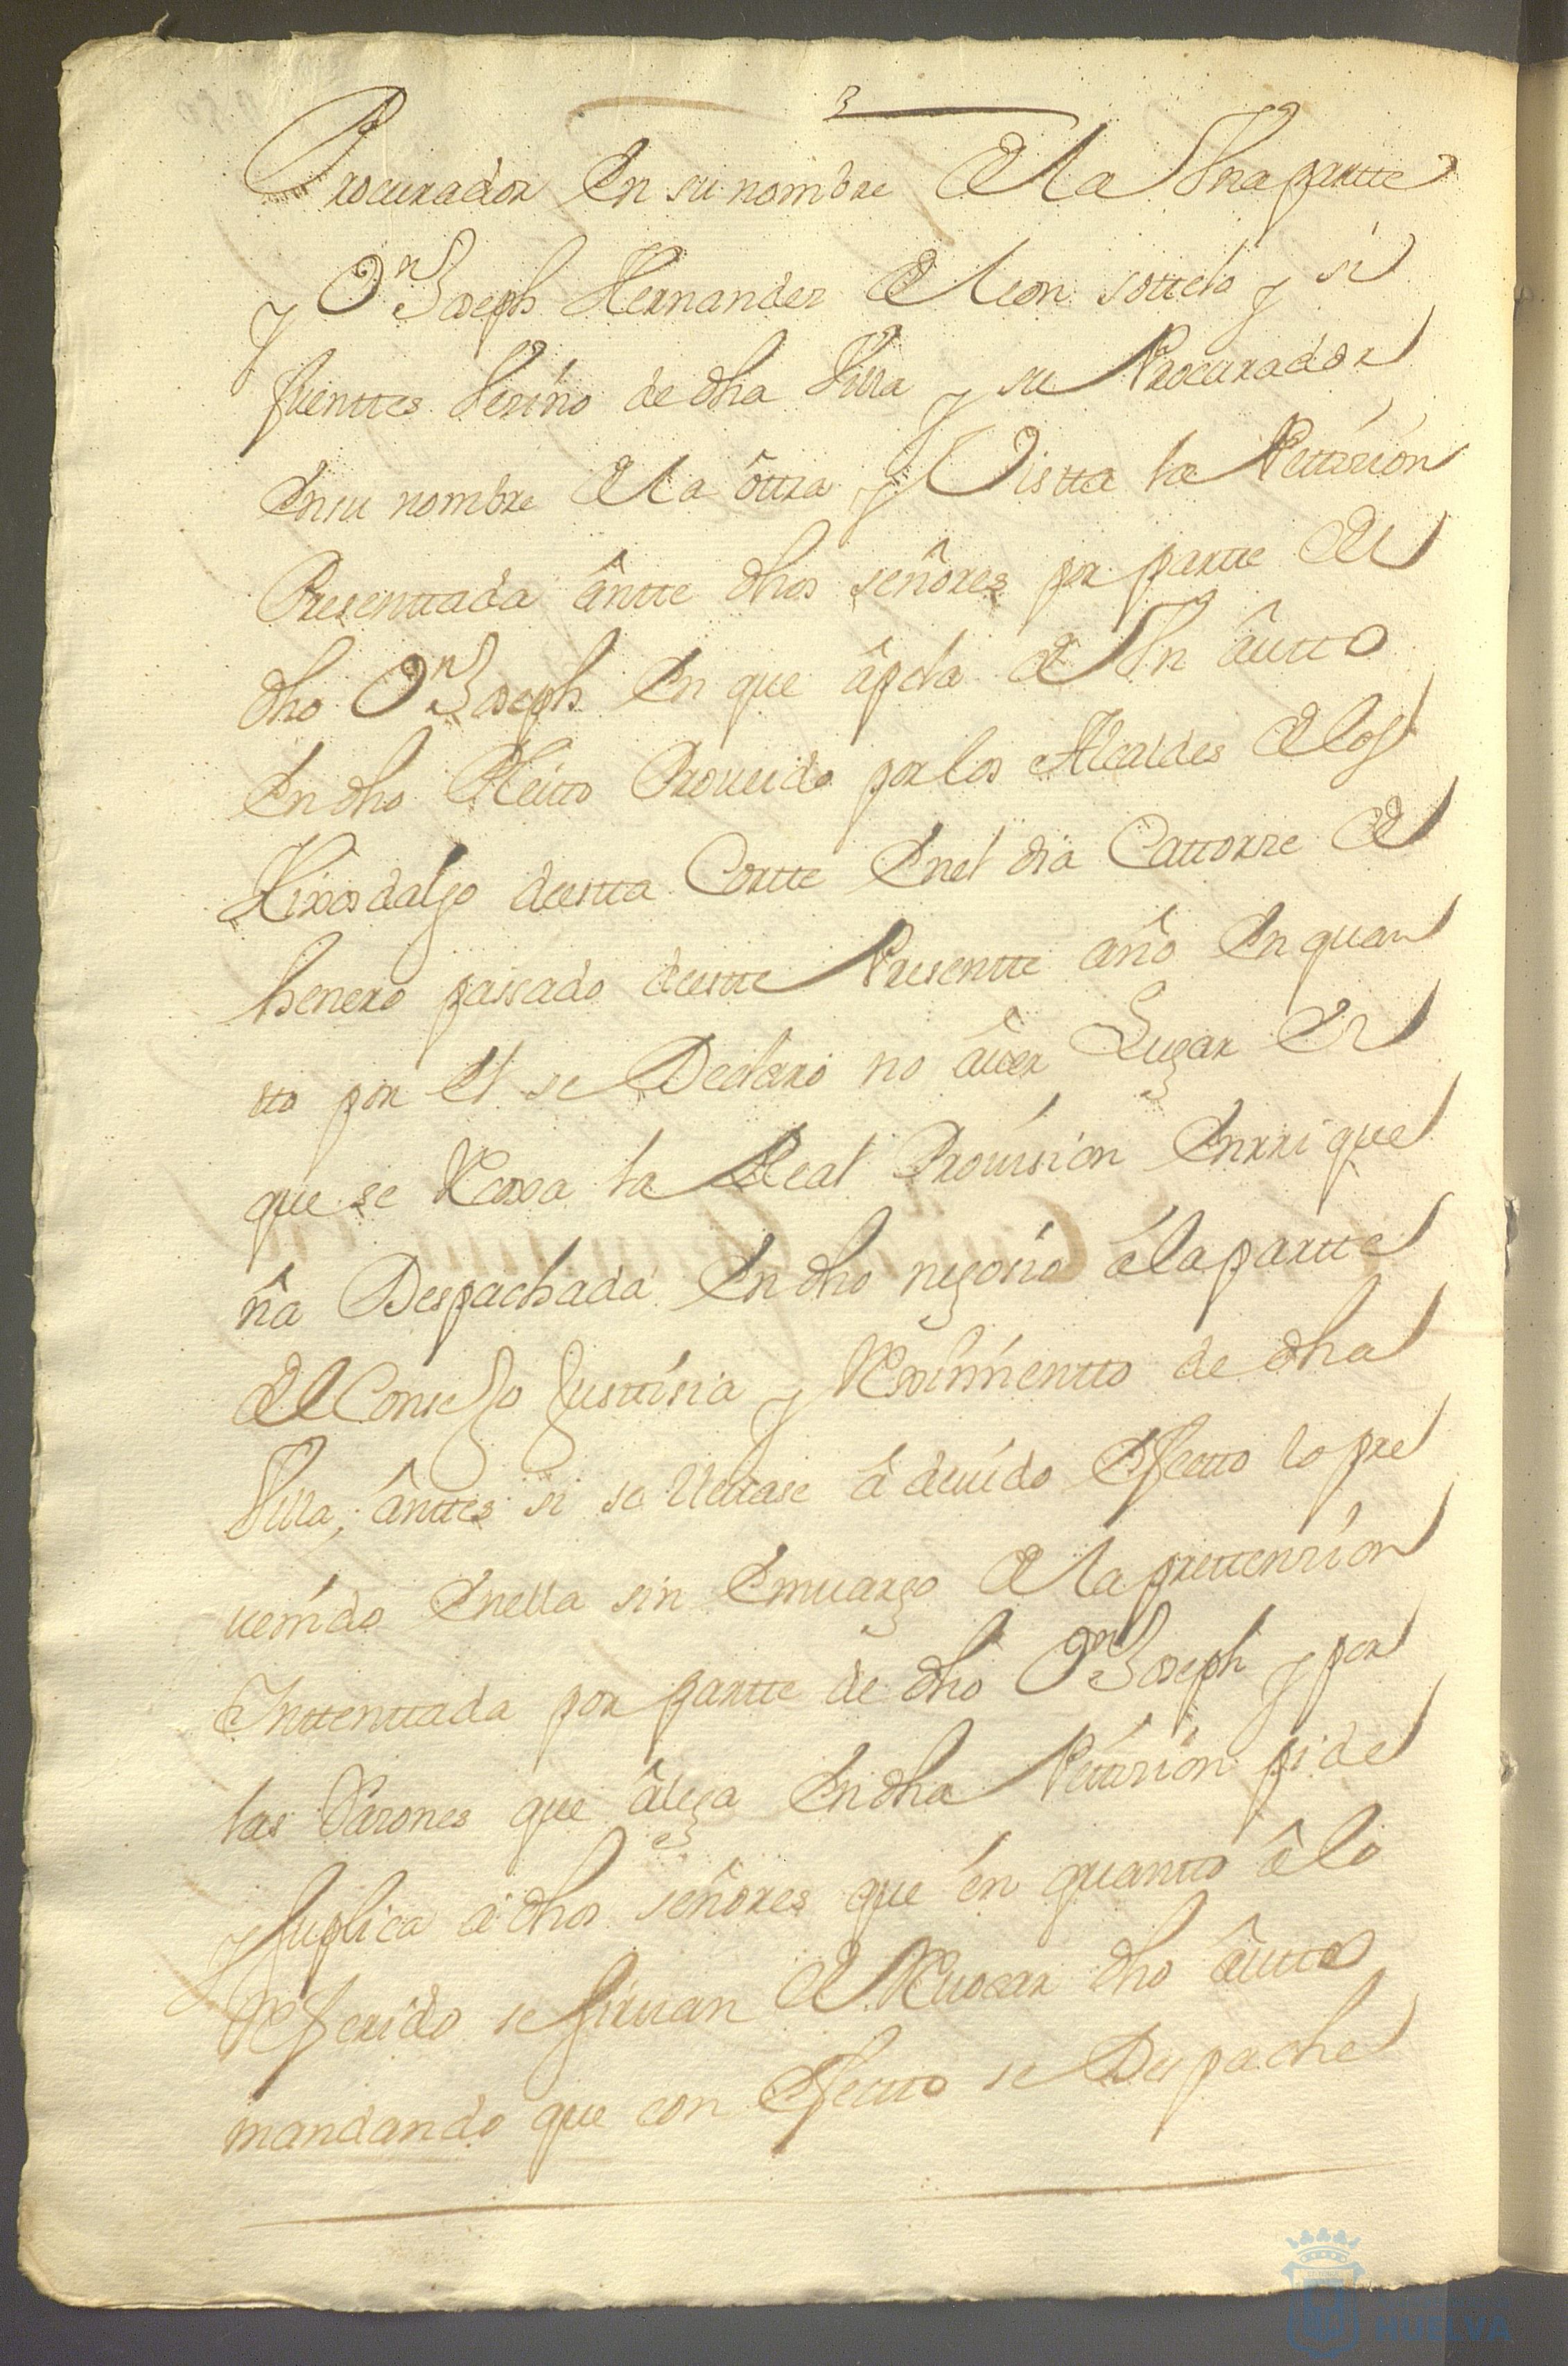 Procurador En su nombre de la Vna partte
y Dn Joseph Hernandez de leon sottelo y si
fuenttes Vezino de dha Villa y su Procurador
En su nombre de la ôttra y Vistta la Pettizion
Presenttada ântte dhos señores por partte del
dho Dn Joseph En que âpela de Vn âutto
En dho Pleitto Proueido por los Alcaldes de los
Hixosdalgo de estta Cortte En el dia Cattorze de
henero passado de estte Presentte año En quan
tto por El se Declaro no âuer Lugar En
que se Recoxa la Real Prouision Enrrique
ña Despachada En dho negozio â la partte
del Consejo Justtisia y Reximientto de dha
Villa, ânttes si se lleuase â deuido Efectto lo pre
uenido En ella sin Emuargo de la prettenzion
Inttenttada por partte de dho Dn Joseph y por
las Razones que âlega En dha Pettizion pide
y suplica â dhos señores que en quantto â lo
Referido se siruan de Reuocar dho âutto
mandando que con Efectto se Despache
HUELVA